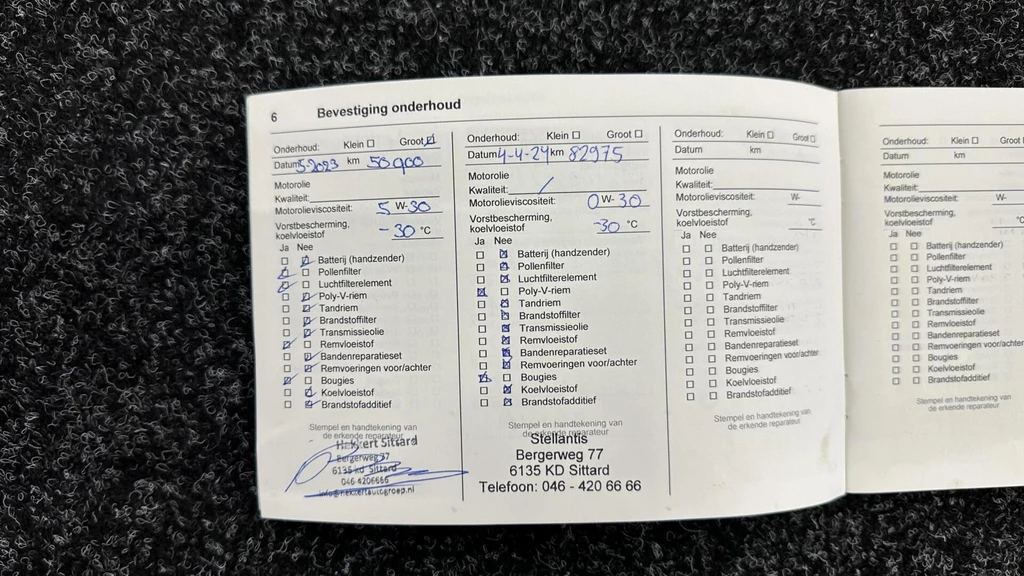 6 Bevestiging onderhoud
Onderhoud: Klein ☐ Groot ☑
Datum 5-2023 km 50900
Motorolie
Kwaliteit:
Motorolieviscositeit: 5 W-30
Vorstbescherming,
koelvloeistof -30 °C
Ja Nee
☐ ☑ Batterij (handzender)
☑ ☐ Pollenfilter
☑ ☐ Luchtfilterelement
☐ ☑ Poly-V-riem
☐ ☑ Tandriem
☐ ☑ Brandstoffilter
☐ ☑ Transmissieolie
☑ ☐ Remvloeistof
☐ ☑ Bandenreparatieset
☐ ☑ Remvoeringen voor/achter
☑ ☐ Bougies
☐ ☑ Koelvloeistof
☐ ☑ Brandstofadditief
Stempel en handtekening van
de erkende reparateur
Hekkert Sittard
Bergerweg 77
6135 kd Sittard
046 4206666
info@hekkertautogroep.nl
Onderhoud: Klein ☐ Groot ☐
Datum 4-4-24 km 82975
Motorolie
Kwaliteit: /
Motorolieviscositeit: 0 W- 30
Vorstbescherming,
koelvloeistof -30 °C
Ja Nee
☐ ☒ Batterij (handzender)
☐ ☒ Pollenfilter
☐ ☒ Luchtfilterelement
☒ ☐ Poly-V-riem
☐ ☒ Tandriem
☐ ☒ Brandstoffilter
☐ ☒ Transmissieolie
☐ ☒ Remvloeistof
☐ ☒ Bandenreparatieset
☐ ☒ Remvoeringen voor/achter
☒ ☐ Bougies
☐ ☒ Koelvloeistof
☐ ☒ Brandstofadditief
Stempel en handtekening van
de erkende reparateur
Stellantis
Bergerweg 77
6135 KD Sittard
Telefoon: 046 - 420 66 66
Onderhoud: Klein ☐ Groot ☐
Datum km
Motorolie
Kwaliteit:
Motorolieviscositeit: W-
Vorstbescherming,
koelvloeistof °C
Ja Nee
☐ ☐ Batterij (handzender)
☐ ☐ Pollenfilter
☐ ☐ Luchtfilterelement
☐ ☐ Poly-V-riem
☐ ☐ Tandriem
☐ ☐ Brandstoffilter
☐ ☐ Transmissieolie
☐ ☐ Remvloeistof
☐ ☐ Bandenreparatieset
☐ ☐ Remvoeringen voor/achter
☐ ☐ Bougies
☐ ☐ Koelvloeistof
☐ ☐ Brandstofadditief
Stempel en handtekening van
de erkende reparateur
Onderhoud: Klein ☐ Groot
Datum km
Motorolie
Kwaliteit:
Motorolieviscositeit: W-
Vorstbescherming,
koelvloeistof °C
Ja Nee
☐ ☐ Batterij (handzender)
☐ ☐ Pollenfilter
☐ ☐ Luchtfilterelement
☐ ☐ Poly-V-riem
☐ ☐ Tandriem
☐ ☐ Brandstoffilter
☐ ☐ Transmissieolie
☐ ☐ Remvloeistof
☐ ☐ Bandenreparatieset
☐ ☐ Remvoeringen voor/achter
☐ ☐ Bougies
☐ ☐ Koelvloeistof
☐ ☐ Brandstofadditief
Stempel en handtekening van
de erkende reparateur